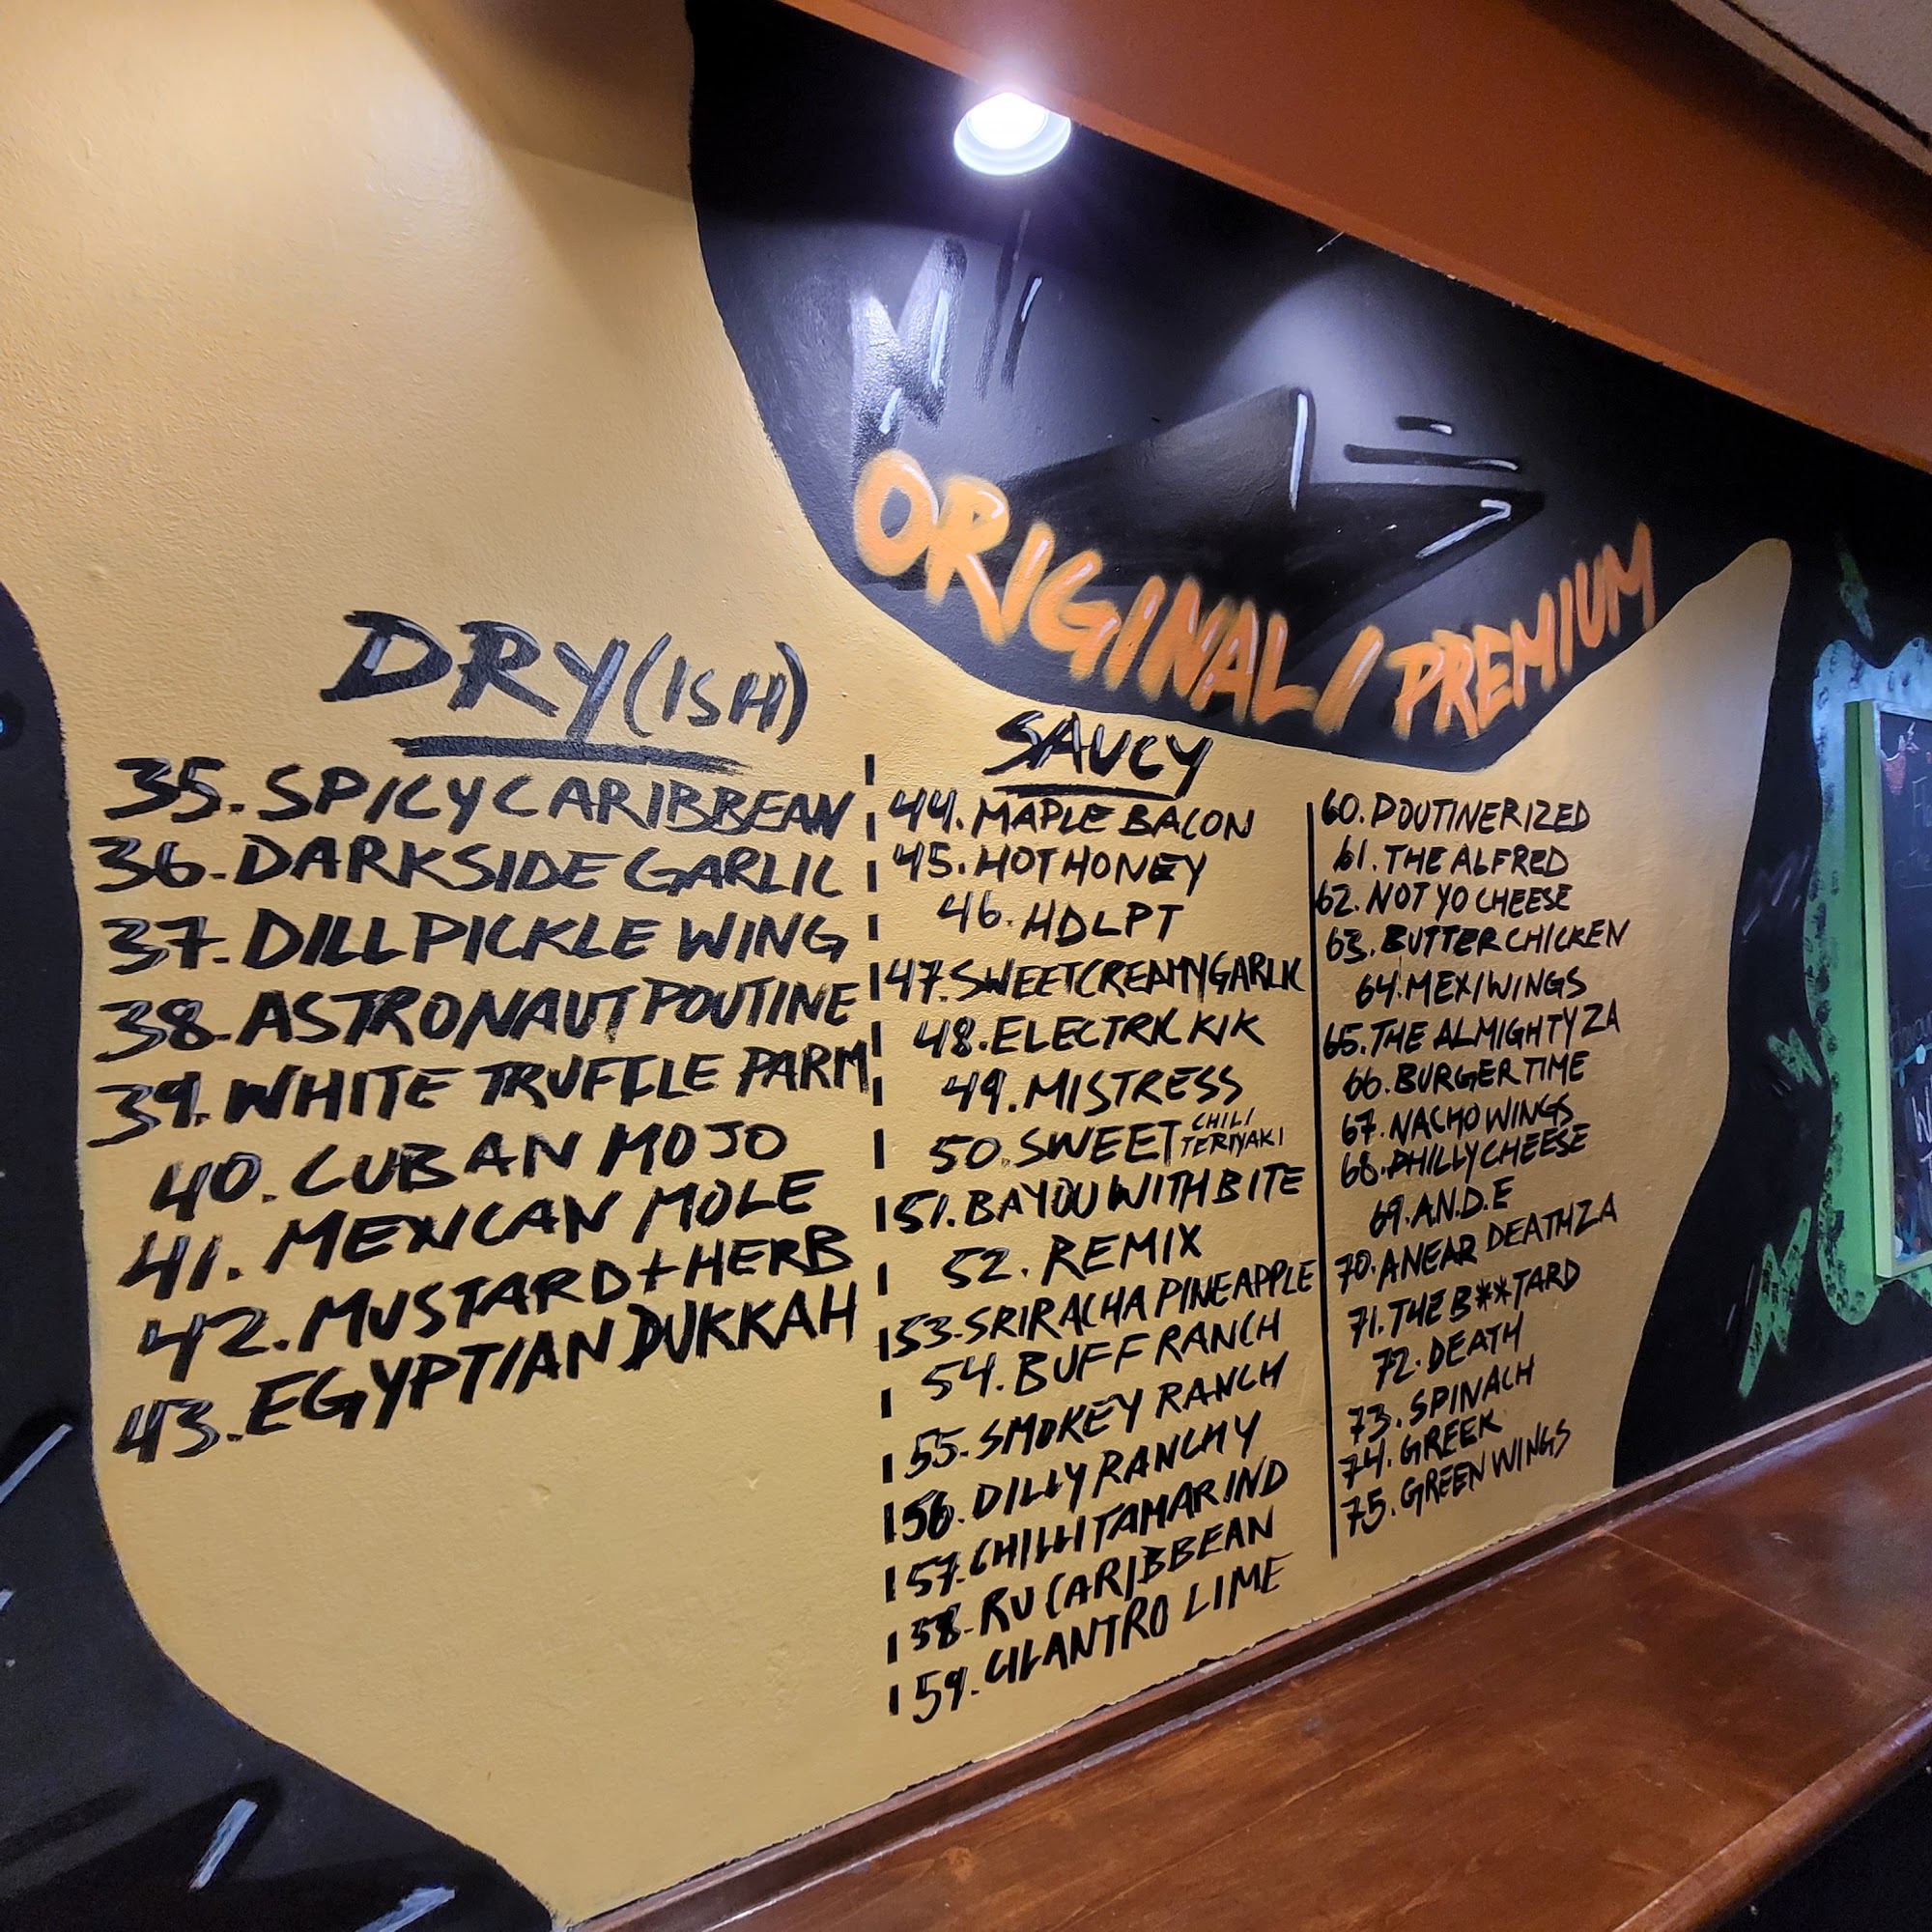 ORIGINAL / PREMIUM
DRY(ISH)
35. SPICY CARIBBEAN
36. DARKSIDE GARLIC
37. DILL PICKLE WING
38. ASTRONAUT POUTINE
39. WHITE TRUFFLE PARM
40. CUBAN MOJO
41. MEXICAN MOLE
42. MUSTARD + HERB
43. EGYPTIAN DUKKAH
SAUCY
44. MAPLE BACON
45. HOT HONEY
46. HDLPT
47. SWEET CREAMY GARLIC
48. ELECTRIC KIK
49. MISTRESS
50. SWEET CHILI TERIYAKI
51. BAYOU WITH BITE
52. REMIX
53. SRIRACHA PINEAPPLE
54. BUFF RANCH
55. SMOKEY RANCH
56. DILLY RANCHY
57. CHILLI TAMARIND
58. RU CARIBBEAN
59. CILANTRO LIME
60. POUTINERIZED
61. THE ALFRED
62. NOT YO CHEESE
63. BUTTER CHICKEN
64. MEXI WINGS
65. THE ALMIGHTY ZA
66. BURGER TIME
67. NACHO WINGS
68. PHILLY CHEESE
69. A.N.D.E
70. A NEAR DEATH ZA
71. THE B**TARD
72. DEATH
73. SPINACH
74. GREEK
75. GREEN WINGS